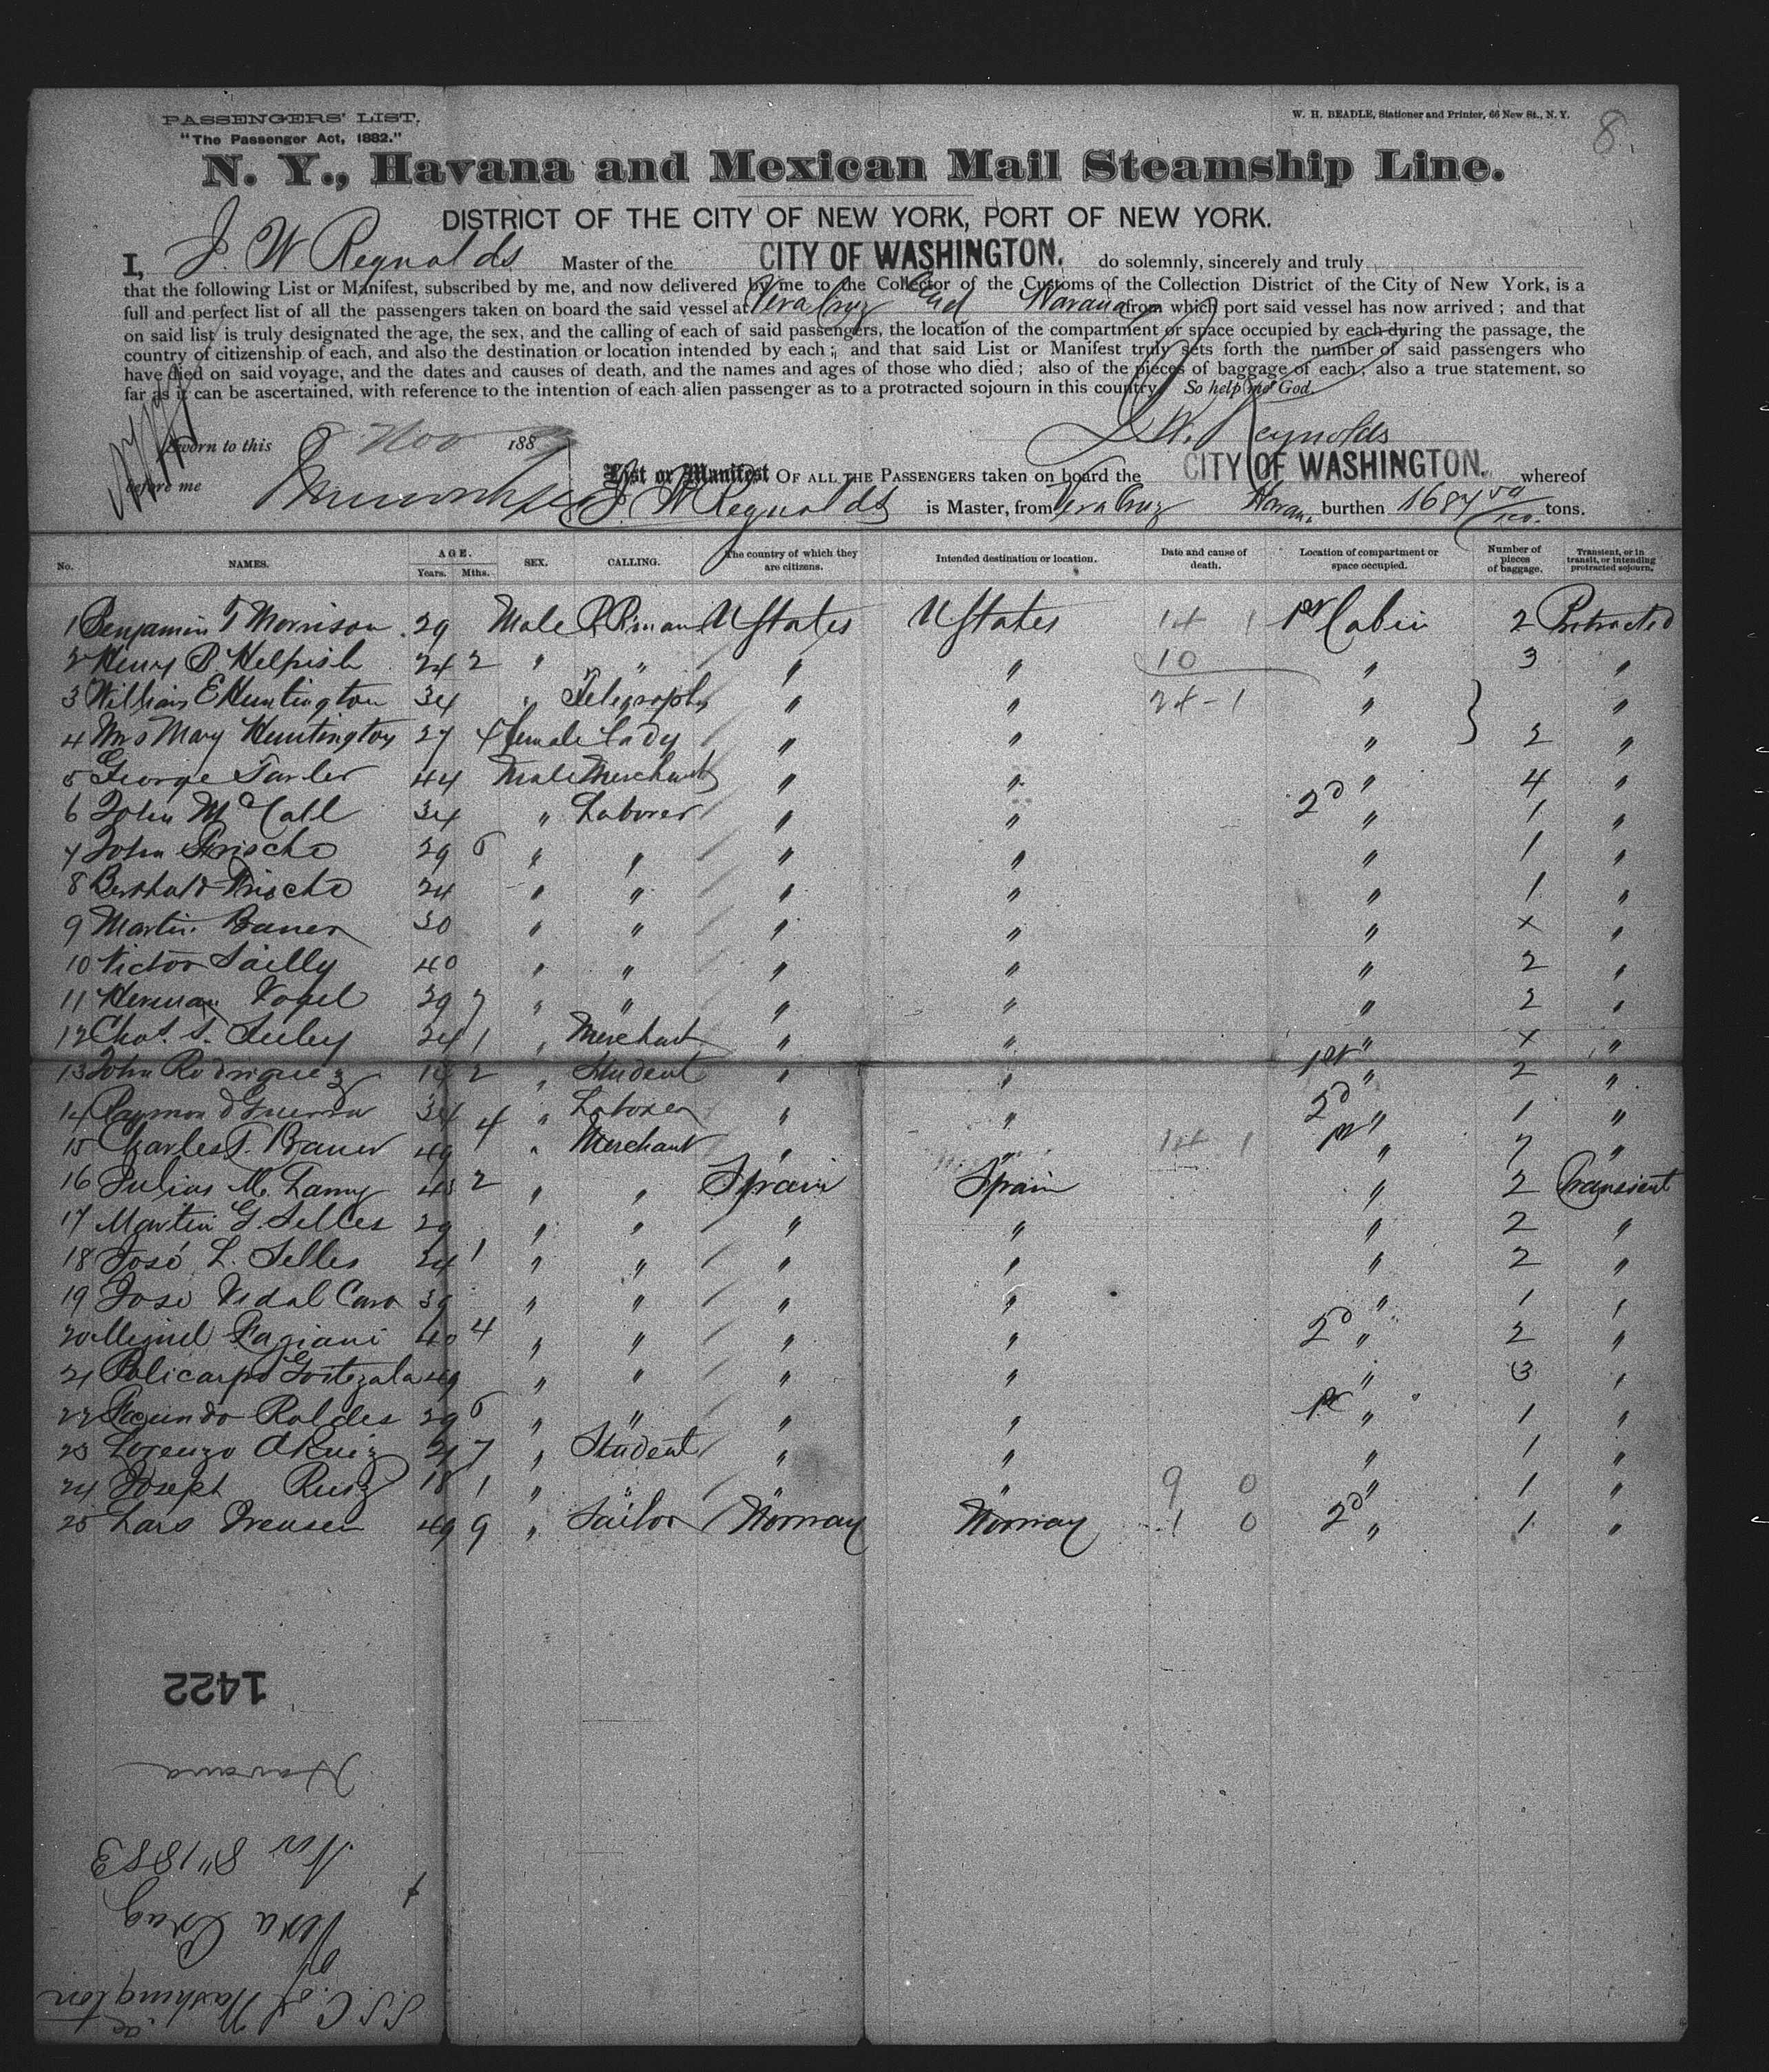 PASSENGERS' LIST.
"The Passenger Act, 1882."
W. H. BEADLE, Stationer and Printer, 66 New St., N. Y.
8.
N. Y., Havana and Mexican Mail Steamship Line.
DISTRICT OF THE CITY OF NEW YORK, PORT OF NEW YORK.
I, J. W Reynolds Master of the CITY OF WASHINGTON. do solemnly, sincerely and truly
that the following List or Manifest, subscribed by me, and now delivered by me to the Collector of the Customs of the Collection District of the City of New York, is a
full and perfect list of all the passengers taken on board the said vessel at Vera Cruz and Havana from which port said vessel has now arrived ; and that
on said list is truly designated the age, the sex, and the calling of each of said passengers, the location of the compartment or space occupied by each during the passage, the
country of citizenship of each, and also the destination or location intended by each ; and that said List or Manifest truly sets forth the number of said passengers who
have died on said voyage, and the dates and causes of death, and the names and ages of those who died ; also of the pieces of baggage of each ; also a true statement, so
far as it can be ascertained, with reference to the intention of each alien passenger as to a protracted sojourn in this country. So help me God.
Sworn to this 8 Nov 188
J. W. Reynolds
before me
List or Manifest OF ALL THE PASSENGERS taken on board the CITY OF WASHINGTON. whereof
J W Reynolds is Master, from Vera Cruz Havana burthen 1684 50/100 tons.
No. NAMES. AGE. Years. Mths. SEX. CALLING. The country of which they are citizens. Intended destination or location. Date and cause of death. Location of compartment or space occupied. Number of pieces of baggage. Transient, or in transit, or intending protracted sojourn.
1 Benjamin T Morrison 29 Male R. Rman U States U States 14 1 1st Cabin 2 Protracted
2 Henry B Helfrish 24 2 " " " " 10 " 3 "
3 William E Huntington 34 " Telegraph " " 24-1 " } "
4 Mrs Mary Huntington 27 4 female Lady " " " 2 "
5 George Tarler 44 Male Merchant " " " 4 "
6 John McCall 34 " Laborer " " 2d " 1 "
7 John Frische 29 6 " " " " " 1 "
8 Berthold Frische 24 " " " " " 1 "
9 Martin Bauer 30 " " " " " x "
10 Victor Sailly 40 " " " " " 2 "
11 Herman Vogel 29 7 " " " " " 2 "
12 Chas. S. Seeley 24 1 " Merchant " " " x "
13 John Rodriguez 14 2 " Student " " 1st " 2 "
14 Raymond Guerra 34 " Laborer " " 2d " 1 "
15 Charles F. Bauer 49 4 " Merchant " " 14 1 1st " 7 "
16 Julius M. Lamy 43 2 " " Spain Spain " 2 Transient
17 Martin G. Selles 29 " " " " " 2 "
18 José L. Selles 24 1 " " " " " 2 "
19 Jose Vidal Caro 39 " " " " " 1 "
20 Miguel Fagiani 40 4 " " " " 2d " 2 "
21 Policarpo Goitezala 49 " " " " " 3 "
22 Facundo Roldes 29 6 " " " " 1st " 1 "
23 Lorenzo A Ruiz 21 7 " Student " " " 1 "
24 Joseph Ruiz 18 1 " " " " 9 0 " 1 "
25 Lars Irensen 49 9 " Sailor Norway Norway 1 0 2d " 1 "
1422
Havana
Nov 8" 1883
&
Vera Cruz
S.S. C. of Washington